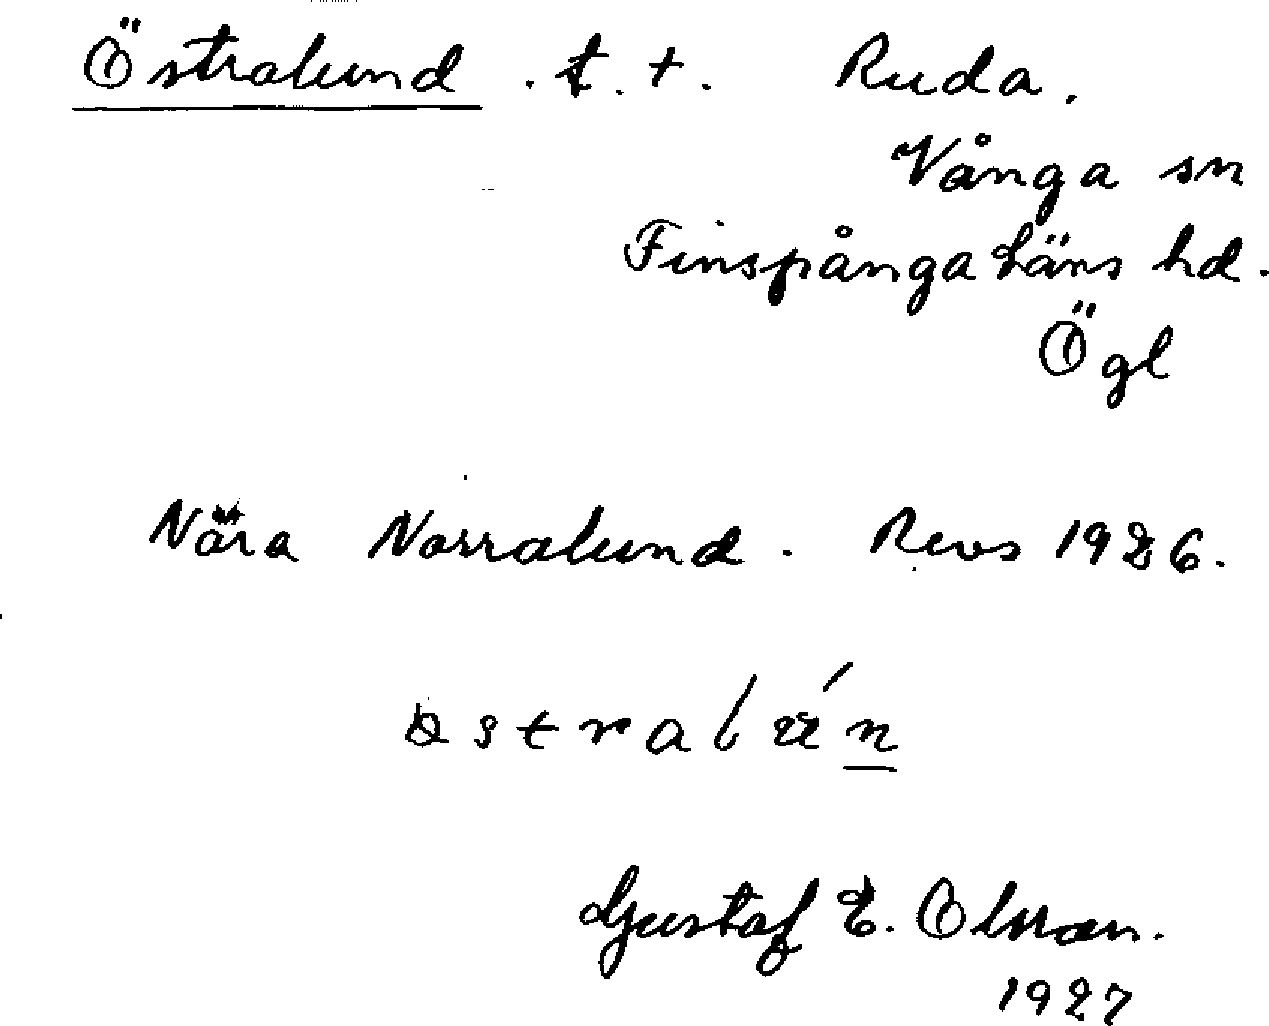 Östralund . t. t. Ruda.
Vånga sn
Finspånga läns hd.
Ögl
Nära Norralund. Revs 1926.
Gustaf E. Olsson.
1927